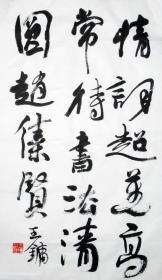 情詞超逸高
常侍書法清
圓趙集賢
王鏞